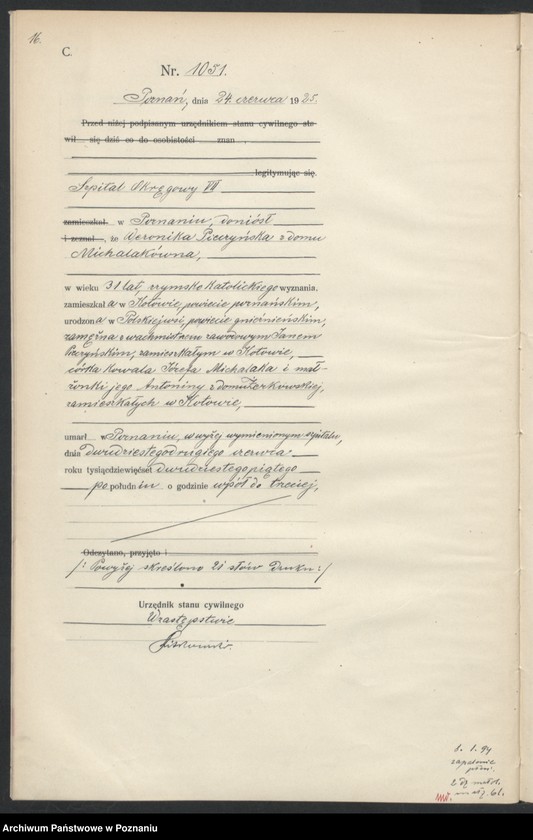 16.
C.
Nr. 1051.
Poznań, dnia 24. czerwca 1925.
Przed niżej podpisanym urzędnikiem stanu cywilnego sta-
wił się dziś co do osobistości znan
legitymując się
Szpital Okręgowy VII
zamieszkał w Poznaniu, doniósł
i zeznał, że Weronika Piczyńska z domu
Michalakówna,
w wieku 31 lat, rzymsko katolickiego wyznania,
zamieszkała w Kotowie, powiecie poznańskim,
urodzona w Polskiejwsi, powiecie gnieźnieńskim,
zamężna z wachmistrzem zawodowym Janem
Piczyńskim, zamieszkałym w Kotowie,
córka kowala Józefa Michalaka i mał-
żonki jego Antoniny z domu Żerkowskiej,
zamieszkałych w Kotowie,
umarł w Poznaniu, w wyżej wymienionym szpitalu,
dnia dwudziestegodrugiego czerwca
roku tysiącdziewięćset dwudziestegopiątego
po południu o godzinie wpół do trzeciej,
Odczytano, przyjęto i
/: Powyżej skreślono 21 słów druku :/
Urzędnik stanu cywilnego
W zastępstwie
1. 94
zapalenie
płuc.
2 dz. małol.
Archiwum Państwowe w Poznaniu